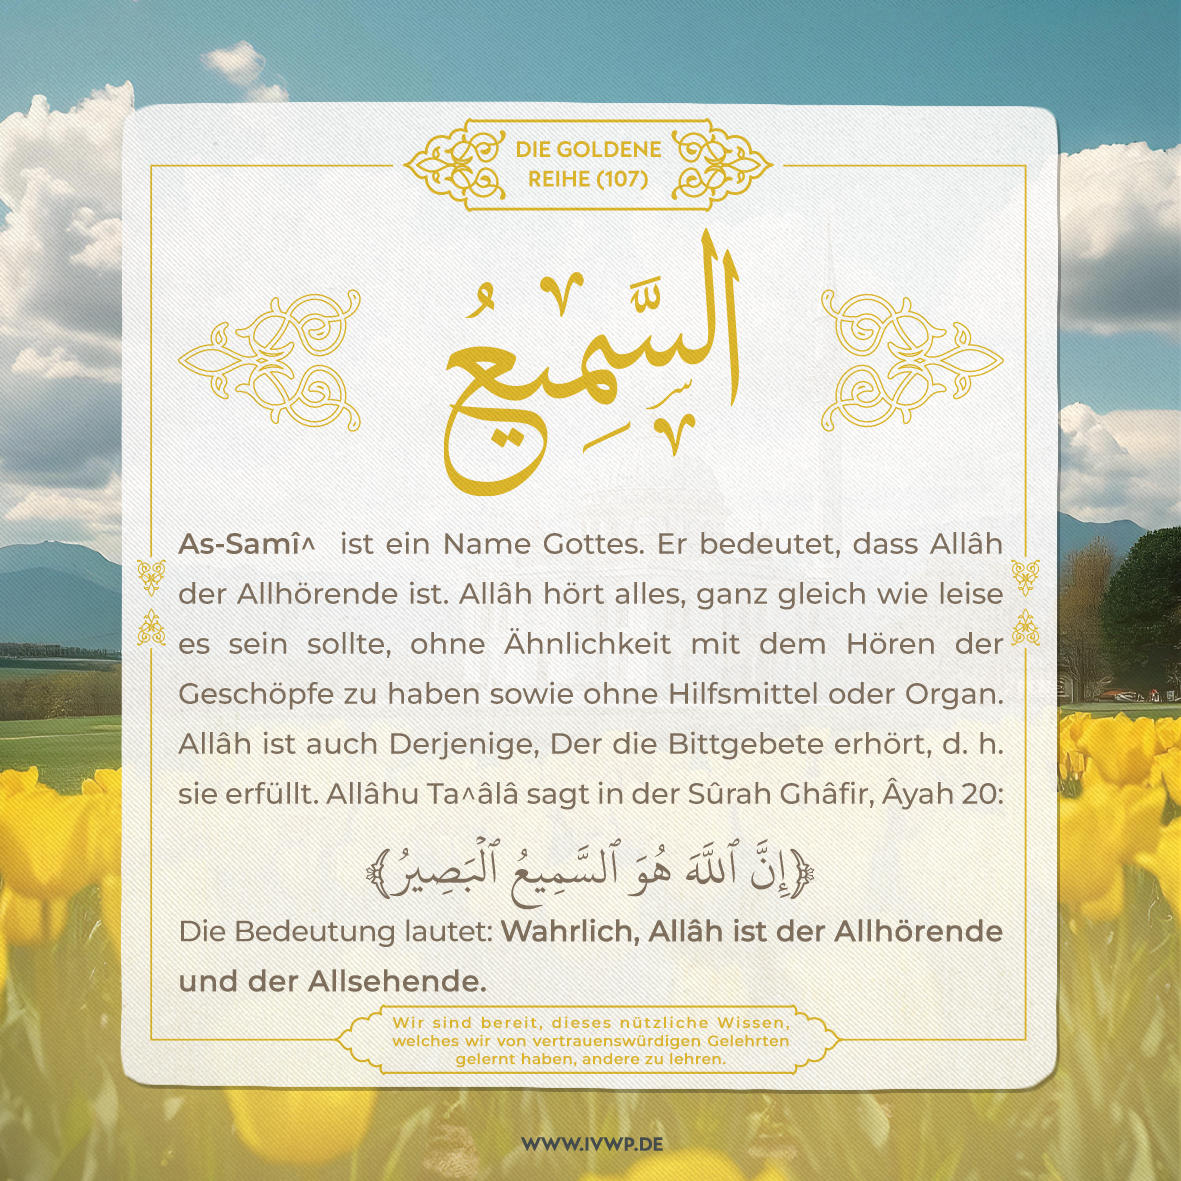 DIE GOLDENE
REIHE (107)
السَّمِيعُ
As-Samî^ ist ein Name Gottes. Er bedeutet, dass Allâh
der Allhörende ist. Allâh hört alles, ganz gleich wie leise
es sein sollte, ohne Ähnlichkeit mit dem Hören der
Geschöpfe zu haben sowie ohne Hilfsmittel oder Organ.
Allâh ist auch Derjenige, Der die Bittgebete erhört, d. h.
sie erfüllt. Allâhu Ta^âlâ sagt in der Sûrah Ghâfir, Âyah 20:
﴿إِنَّ ٱللَّهَ هُوَ ٱلسَّمِيعُ ٱلْبَصِيرُ﴾
Die Bedeutung lautet: Wahrlich, Allâh ist der Allhörende
und der Allsehende.
Wir sind bereit, dieses nützliche Wissen,
welches wir von vertrauenswürdigen Gelehrten
gelernt haben, andere zu lehren.
WWW.IVWP.DE